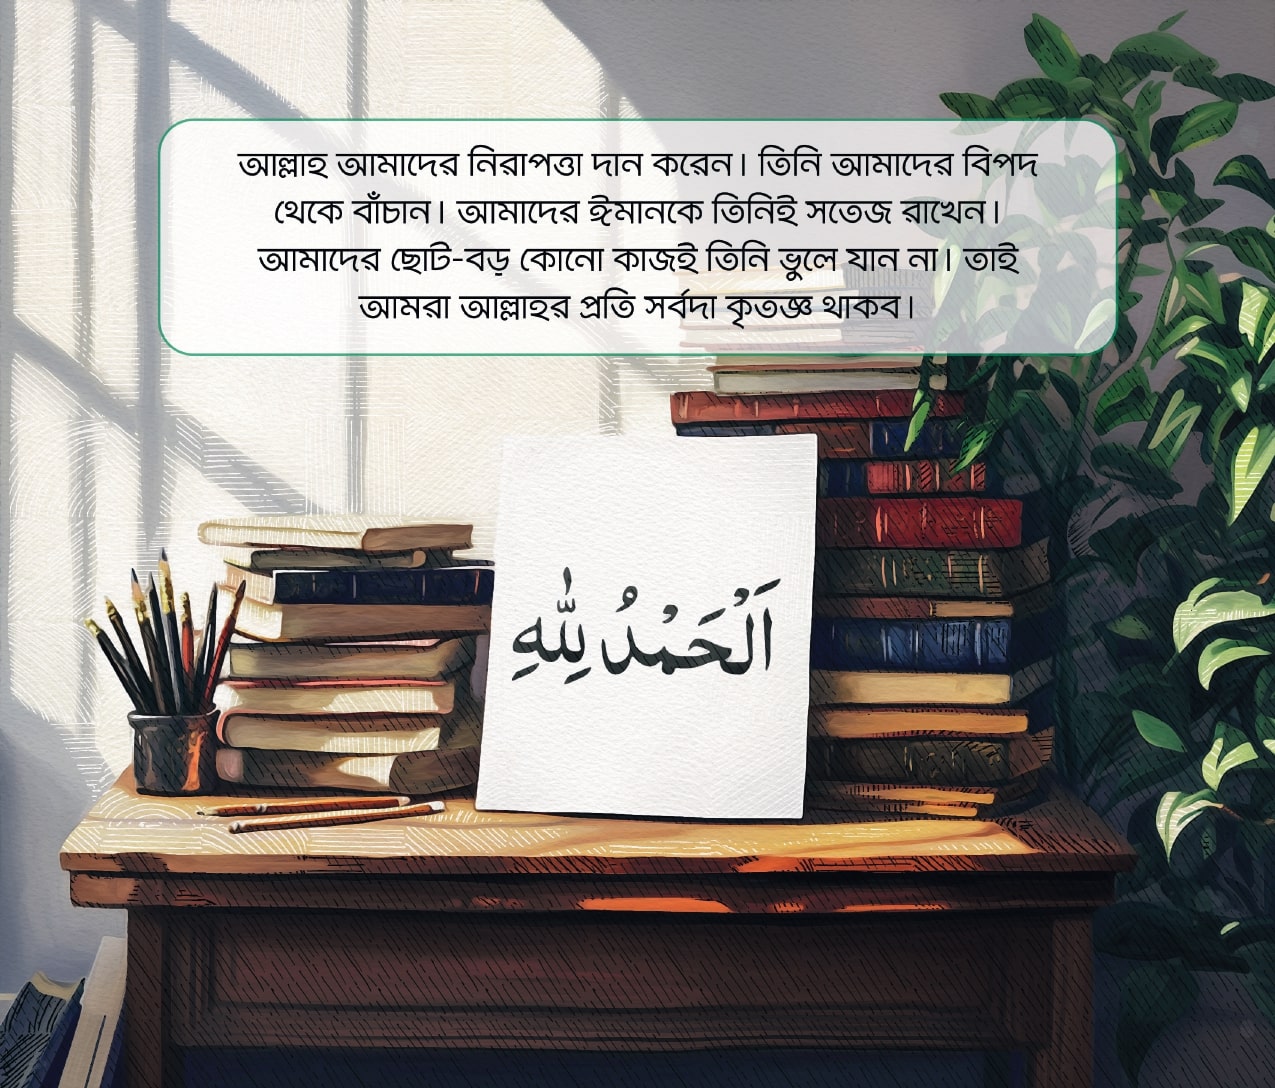 আল্লাহ আমাদের নিরাপত্তা দান করেন। তিনি আমাদের বিপদ
থেকে বাঁচান। আমাদের ঈমানকে তিনিই সতেজ রাখেন।
আমাদের ছোট-বড় কোনো কাজই তিনি ভুলে যান না। তাই
আমরা আল্লাহর প্রতি সর্বদা কৃতজ্ঞ থাকব।
اَلْحَمْدُ لِلّٰهِ